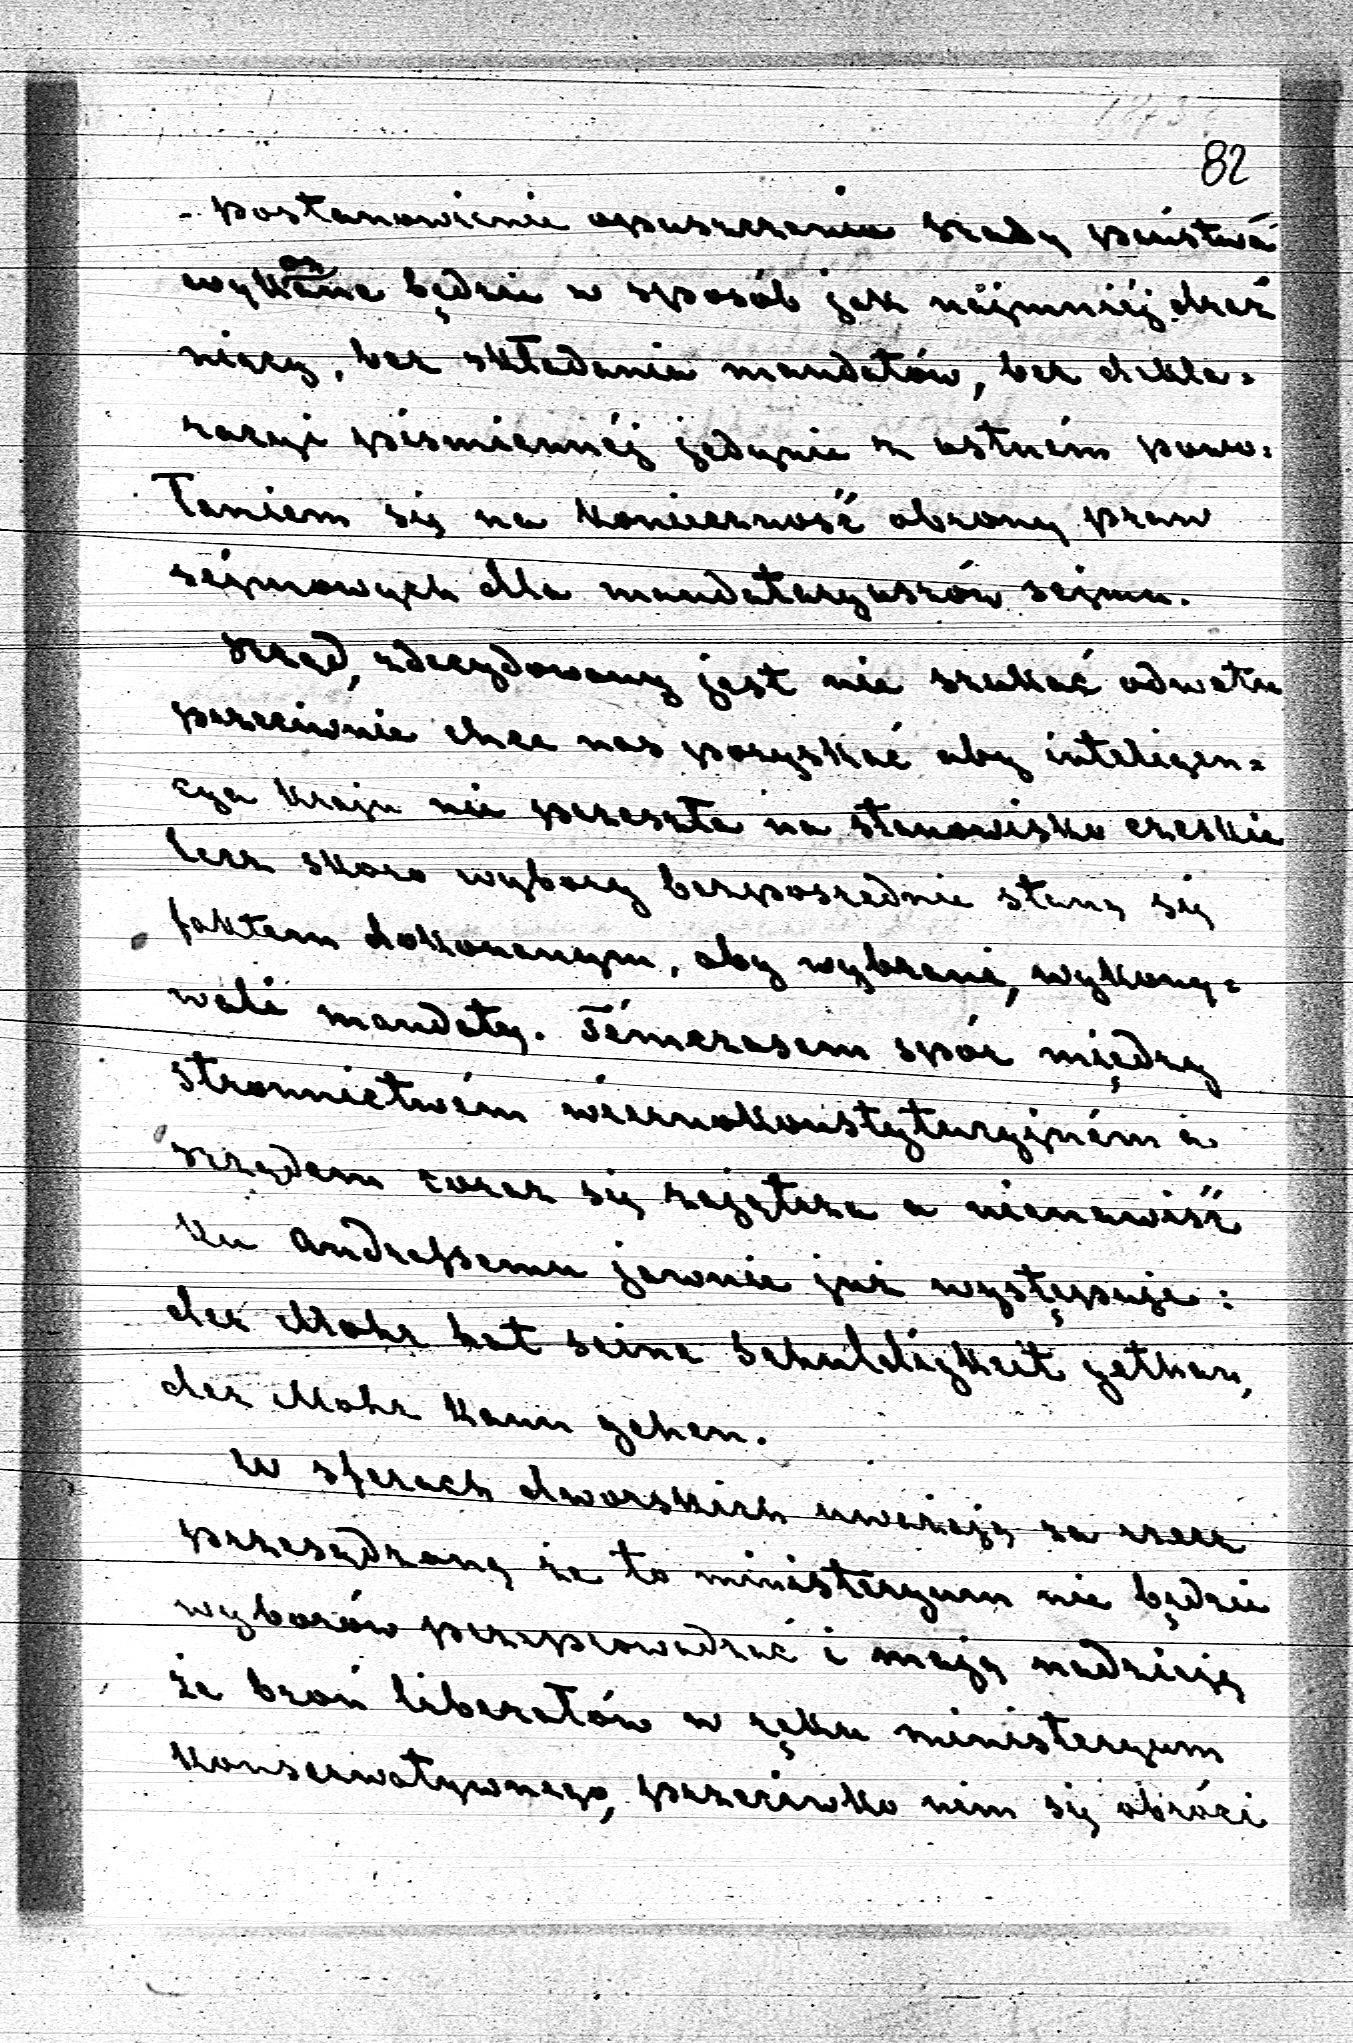 1873
82
postanowienie opuszczenia Rady państwa
wykonane będzie w sposób jak najmniéj draż
niący, bez składania mandatów, bez dekla=
racyi piśmiennéj jedynie z ustném powo=
łaniem się na konieczność obrony praw
sejmowych dla mandataryuszów sejmu.
Rząd, zdecydowany jest nie szukać odwetu
przeciwnie chce nas pozyskać aby inteligen=
cya kraju nie przeszła na stanowisko czeskie
lecz skoro wybory bezpośrednie staną się
faktem dokonanym, aby wybrani, wykony=
wali mandaty. Témczasem spór między
stronnictwém wiernokonstytucyjném a
rządem coraz się zajątrza a nienawiść
ku Andrassemu jawnie już występuje:
der Mohr hat seine Schuldigkeit gethan,
der Mohr kann gehen.
W sferach dworskich uważają za rzecz
przesądzoną że to ministeryum nie będzie
wyborów przeprowadzać i mają nadzieję
że broń liberałów w ręku ministeryum
konserwatywnego, przeciwko nim się obróci